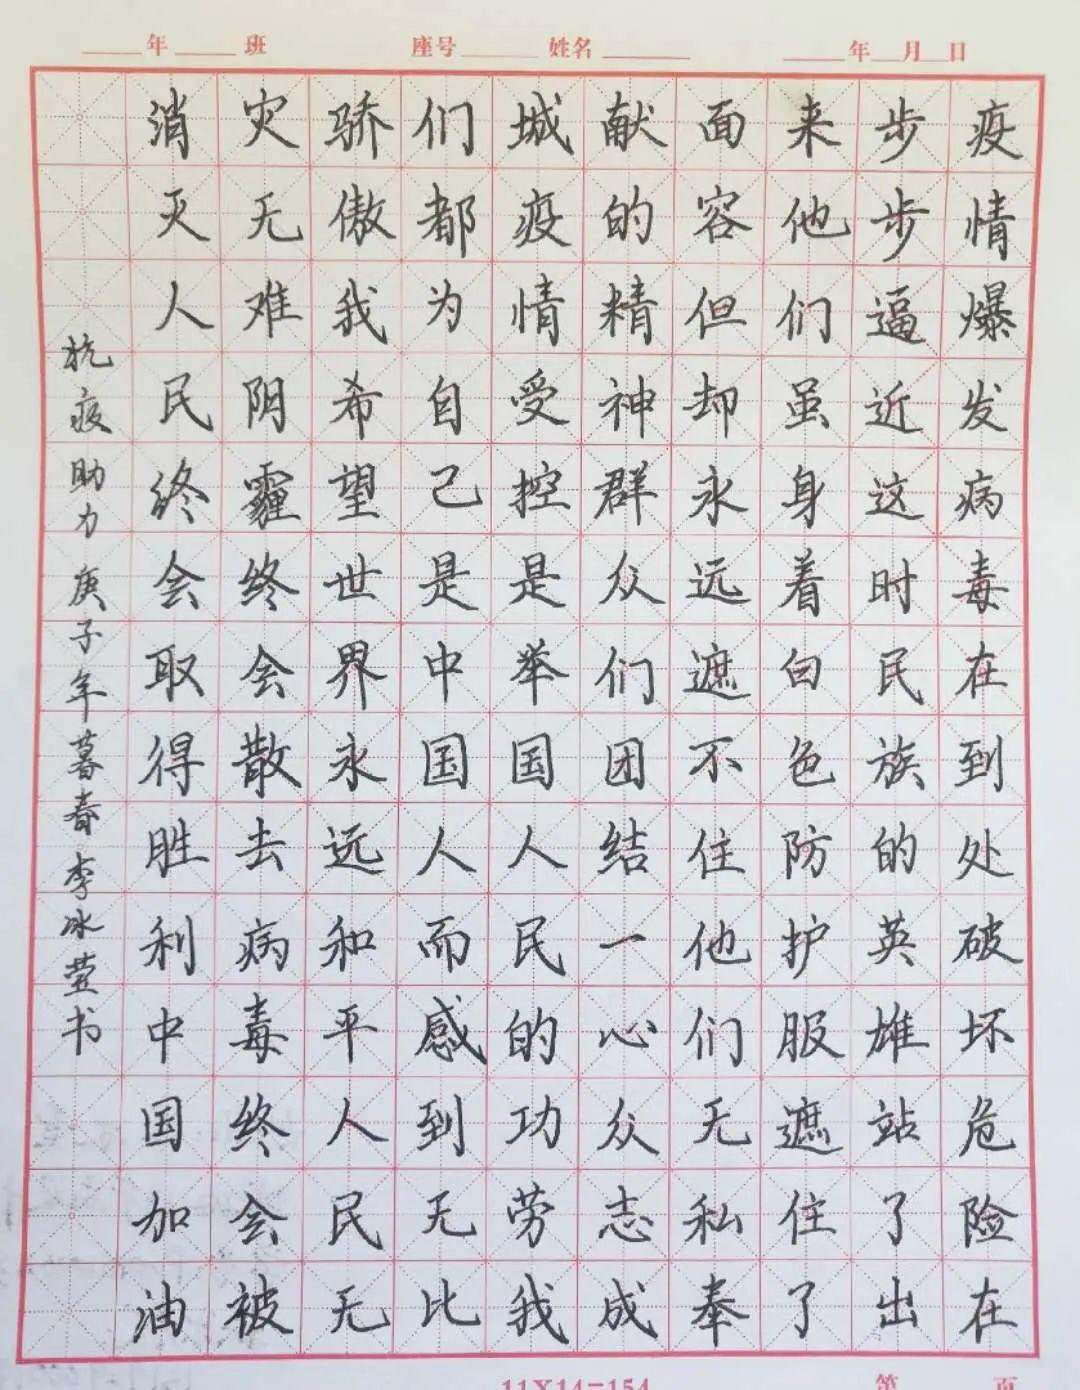 ____年____班 座号______ 姓名______ ____年__月__日
疫情爆发病毒在到处破坏危险在
步步逼近这时民族的英雄站了出
来他们虽身着白色防护服遮住了
面容但却永远遮不住他们无私奉
献的精神群众们团结一心众志成
城疫情受控是举国人民的功劳我
们都为自己是中国人而感到无比
骄傲我希望世界永远和平人民无
灾无难阴霾终会散去病毒终会被
消灭人民终会取得胜利中国加油
抗疫助力 庚子年暮春李冰莹书
11×14=154
第 页